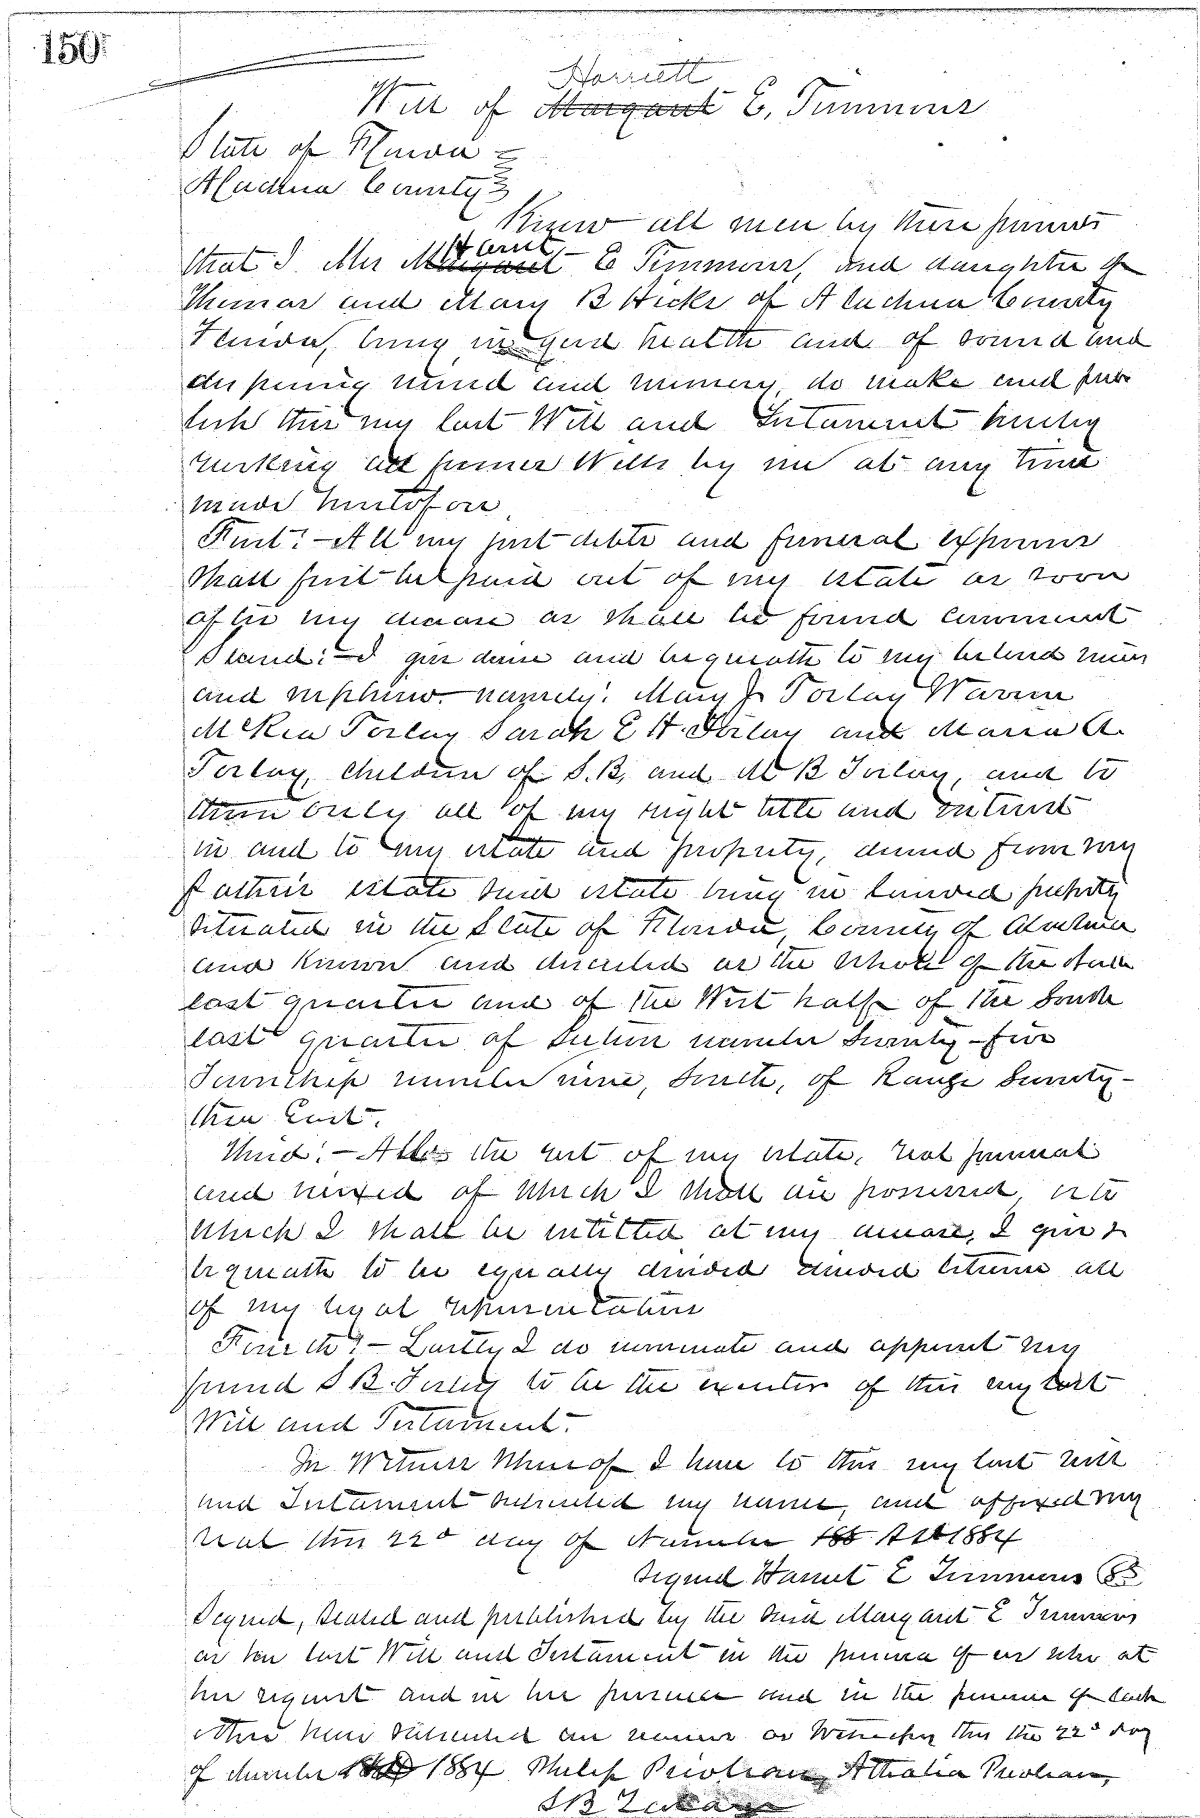 150
Harriett
Will of Margaret E. Timmons
State of Florida
Alachua County
Know all men by these presents
Harriet
that I Mrs Margaret E Timmons, and daughter of
Thomas and Mary B Hicks of Alachua County
Florida, being in good health and of sound and
disposing mind and memory do make and pub
lish this my last Will and Testament hereby
revoking all former Wills by me at any time
made heretofore
First:- All my just debts and funeral expenses
shall first be paid out of my estate as soon
after my decease as shall be found convenient
Second:- I give devise and bequeath to my beloved nieces
and nephew namely: Mary J Torlay Warren
McRea Torlay Sarah E H. Torlay and Maria A.
Torlay, children of S.B. and M B Torlay, and to
them only all of my right title and interest
in and to my estate and property, derived from my
father's estate said estate being in landed property
situated in the State of Florida, County of Alachua
and known and described as the whole of the North
east quarter and of the West half of the South
east quarter of Section number Twenty-five
Township number nine, South, of Range Twenty-
three East.
Third:- All the rest of my estate, real personal
and mixed of which I shall die possessed, or to
which I shall be entitled at my decease, I give &
bequeath to be equally divided divided between all
of my legal representatives
Fourth:- Lastly I do nominate and appoint my
friend S B. Torlay to be the executor of this my last
Will and Testament.
In Witness Whereof I have to this my last will
and Testament subscribed my name, and affixed my
seal this 22d day of November 188 AD 1884
Signed Harriet E Timmons
Signed, sealed and published by the said Margaret E Timmons
as her last Will and Testament in the presence of us who at
her request and in her presence and in the presence of each
other have subscribed our names as Witnesses this the 22d day
of November 1884 Philip Prioleau, Athalia Prioleau,
S B